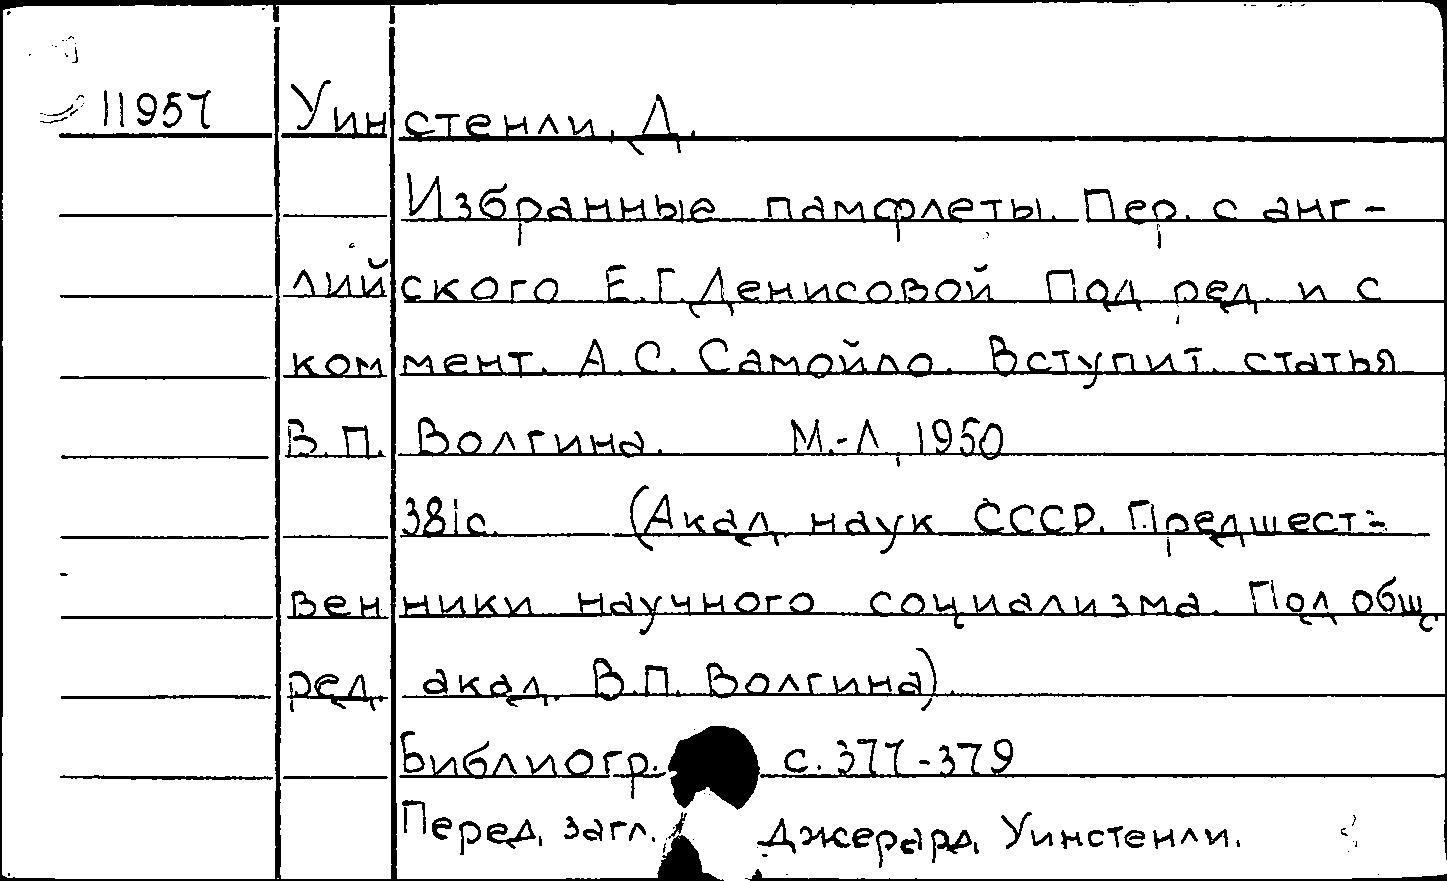 11957 Уинстенли, Д.
Избранные памфлеты. Пер. с анг-
лийского Е.Г.Денисовой Под ред. и с
коммент. А.С.Самойло. Вступит. статья
В.П. Волгина. М.-Л, 1950
381с. (Акад наук СССР. Предшест-
венники научного социализма. Под общ.
ред. акад. В.П. Волгина).
Библиогр. с. 377-379
Перед. загл. Джерард Уинстенли.